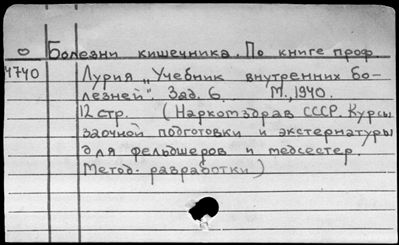 О Болезни кишечника. По книге проф.
4740 Лурия „Учебник внутренних бо-
лезней". Зад. 6. М., 1940.
12 стр. (Наркомздрав СССР. Курсы
заочной подготовки и экстернатуры
для фельдшеров и медсестер.
Метод. разработки)